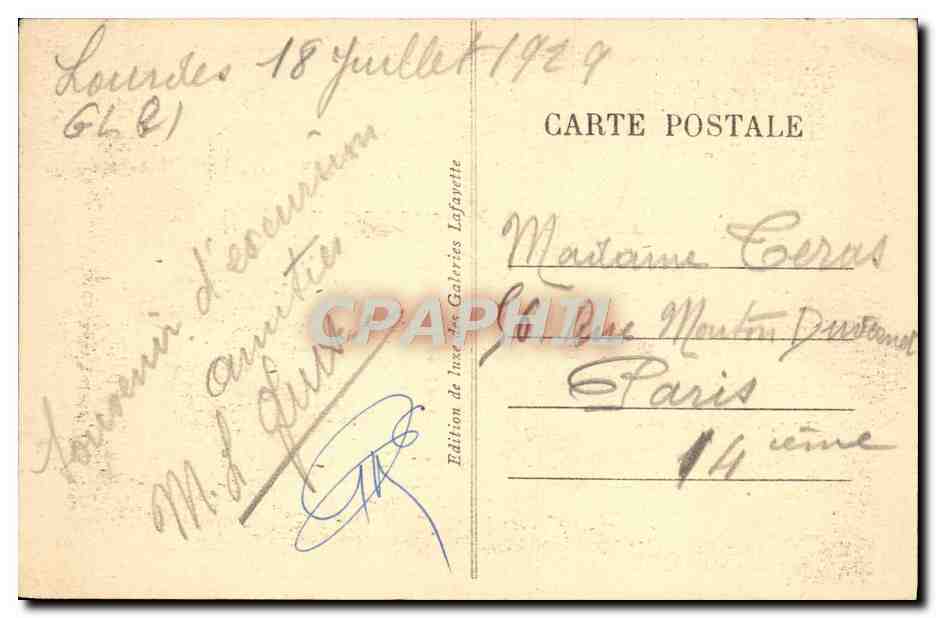 Lourdes 18 Juillet 1929
GL 21
souvenir d'excursion
amitiés
M. L.
CARTE POSTALE
Edition de luxe des Galeries Lafayette
Madame Ceras
Rue Mouton Duvernet
Paris
14 ième
CPAPHIL